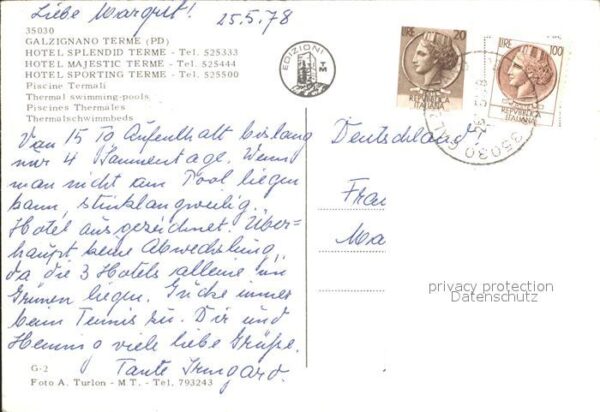 Liebe Margrit! 25.5.78
35030
GALZIGNANO TERME (PD)
HOTEL SPLENDID TERME - Tel. 525333
HOTEL MAJESTIC TERME - Tel. 525444
HOTEL SPORTING TERME - Tel. 525500
Piscine Termali
Thermal swimming-pools
Piscines Thermales
Thermalschwimmbeds
EDIZIONI
TM
LIRE 20
REPVBBLICA
ITALIANA
LIRE 100
REPVBBLICA
ITALIANA
35030
Von 15 To Aufenthalt bislang
nur 4 Sonnentage. Wenn
man nicht am Pool liegen
kann, stinklangweilig.
Hotel ausgezeichnet. Über-
haupt keine Abwechslung,
da die 3 Hotels alleine im
Grünen liegen. Gucke immer
beim Tennis zu. Dir und
Henning viele liebe Grüße.
Tante Irmgard.
Deutschland
Frau
Ma
privacy protection
Datenschutz
G-2
Foto A. Turlon - M.T. - Tel. 793243